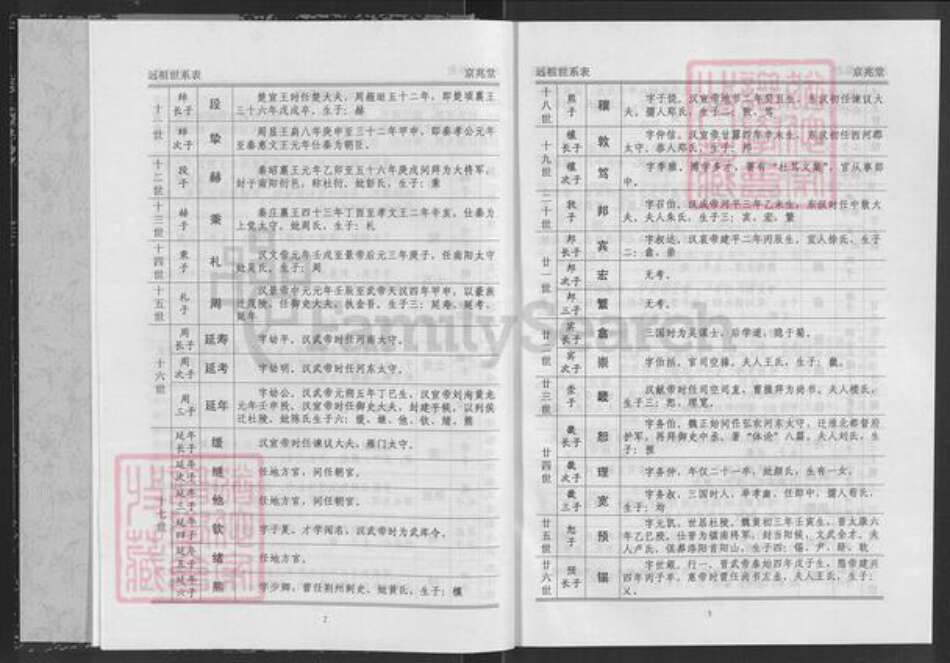 远祖世系表 京兆堂
十一世 长子 段 楚宣王时任楚大夫,周赧王五十二年,即楚顷襄王
三十六年戊戌卒。生子:赫
次子 挚 周显王扁八年庚申至三十二年甲申,即秦孝公元年
至秦惠文王元年仕秦为朝臣。
十二世 段子 赫 秦昭襄王元年乙卯至五十六年庚戌间拜为大将军,
封于南阳衍邑,称杜衍。妣彭氏,生子:秉
十三世 赫子 秉 秦庄襄王四十三年丁酉至孝文王二年辛亥,仕秦为
上党太守。妣周氏,生子:札
十四世 秉子 札 汉文帝元年壬戌至景帝后元三年庚子,任南阳太守
妣吴氏,生子:周
十五世 札子 周 汉景帝中元元年壬辰至武帝天汉四年甲申,以豪族
迁茂陵,任御史大夫、执金吾。生子三:延寿、延考、
延年
十六世 周长子 延寿 字幼平,汉武帝时任河南太守。
周次子 延考 字幼明,汉武帝时任河东太守。
周三子 延年 字幼公,汉武帝元朔五年丁巳生,汉宣帝刘询黄龙
元年壬申殁。汉宣帝时任御史大夫,封建平侯,以列侯
迁杜陵。妣陈氏生子六:缓、继、他、钦、绪、熊
十七世 延年长子 缓 汉宣帝时任谏议大夫,雁门太守。
延年次子 继 任地方官,间任朝官。
延年三子 他 任地方官,间任朝官。
延年四子 钦 字子夏,才学闻名,汉武帝时为武库令。
延年五子 绪 任地方官。
延年六子 熊 字少卿,曾任荆州刺史。妣黄氏,生子:穰
2
远祖世系表 京兆堂
十八世 熊子 穰 字子饶,汉宣帝地节二年癸丑生,东汉初任谏议大
夫。孺人郑氏,生子二:敦、笃
十九世 穰长子 敦 字仲信,汉宣帝甘露四年辛未生,东汉初任西河郡
太守。恭人郑氏,生子:邦
穰次子 笃 字季雅,博学多才,著有“杜笃文集”,官从事郎
中。
二十世 敦子 邦 字召伯,汉成帝河平三年乙未生,东汉时任中散大
夫。夫人朱氏,生子三:宾、宏、繁
廿一世 邦长子 宾 字叔达,汉哀帝建平二年丙辰生,宜人徐氏,生子
二:鑫、崇
邦次子 宏 无考。
邦三子 繁 无考。
廿二世 宾长子 鑫 三国时为吴谋士,后学道,隐于菊。
宾次子 崇 字伯括,官司空掾。夫人王氏,生子:畿
廿三世 崇子 畿 汉献帝时任司空司直,曹操拜为尚书。夫人楼氏,
生子三:恕、理宽。
廿四世 畿长子 恕 字务伯,魏正始间任弘农河东太守,迁淮北都督府
护军,再拜御史中丞。著“体论”八篇。夫人刘氏,生
子:预
畿次子 理 字务仲,年仅二十一卒。妣颜氏,生有一女。
畿三子 宽 字务叔,三国时人,举孝廉,任郎中。孺人荀氏,
生子:均
廿五世 恕子 预 字元凯,世居杜陵。魏黄初三年壬寅生,晋太康六
年乙巳殁。仕晋为镇南将军,封当阳侯,文武全才。夫
人卢氏,俱葬洛阳首阳山。生子四:锡、尹、跻、耽
廿六世 预长子 锡 字世嘏,行一,晋武帝泰始四年戊子生,愍帝建兴
四年丙子卒。惠帝时曾任尚书左丞。夫人王氏,生子:
乂。
3
FamilySearch